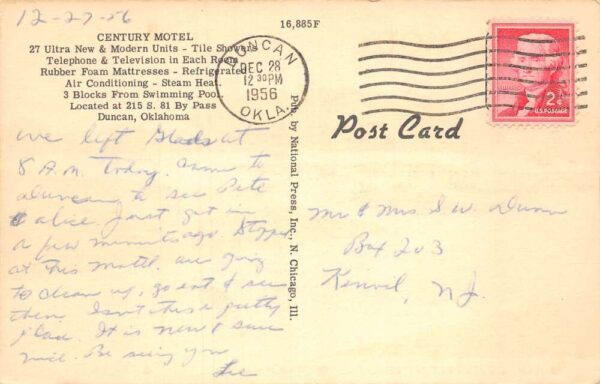 12-27-56
CENTURY MOTEL
27 Ultra New & Modern Units - Tile Showers
Telephone & Television in Each Room
Rubber Foam Mattresses - Refrigerated
Air Conditioning - Steam Heat
3 Blocks From Swimming Pool
Located at 215 S. 81 By Pass
Duncan, Oklahoma
we left Glads at
8 A.M. Today. Came to
to see Pete
& alice. Just got in
a few minuits ago. Stopped
at this motel. are going
to clean up, go eat & see
them. Isn't this a pretty
place. It is new & sure
nice. Be seeing you
16,885F
Pub. by National Press, Inc., N. Chicago, Ill.
DUNCAN
DEC 28
12 30 PM
1956
OKLA.
2¢
U.S. POSTAGE
Post Card
Mr & Mrs S W. Dunn
Box 203
Kenvil, N.J.